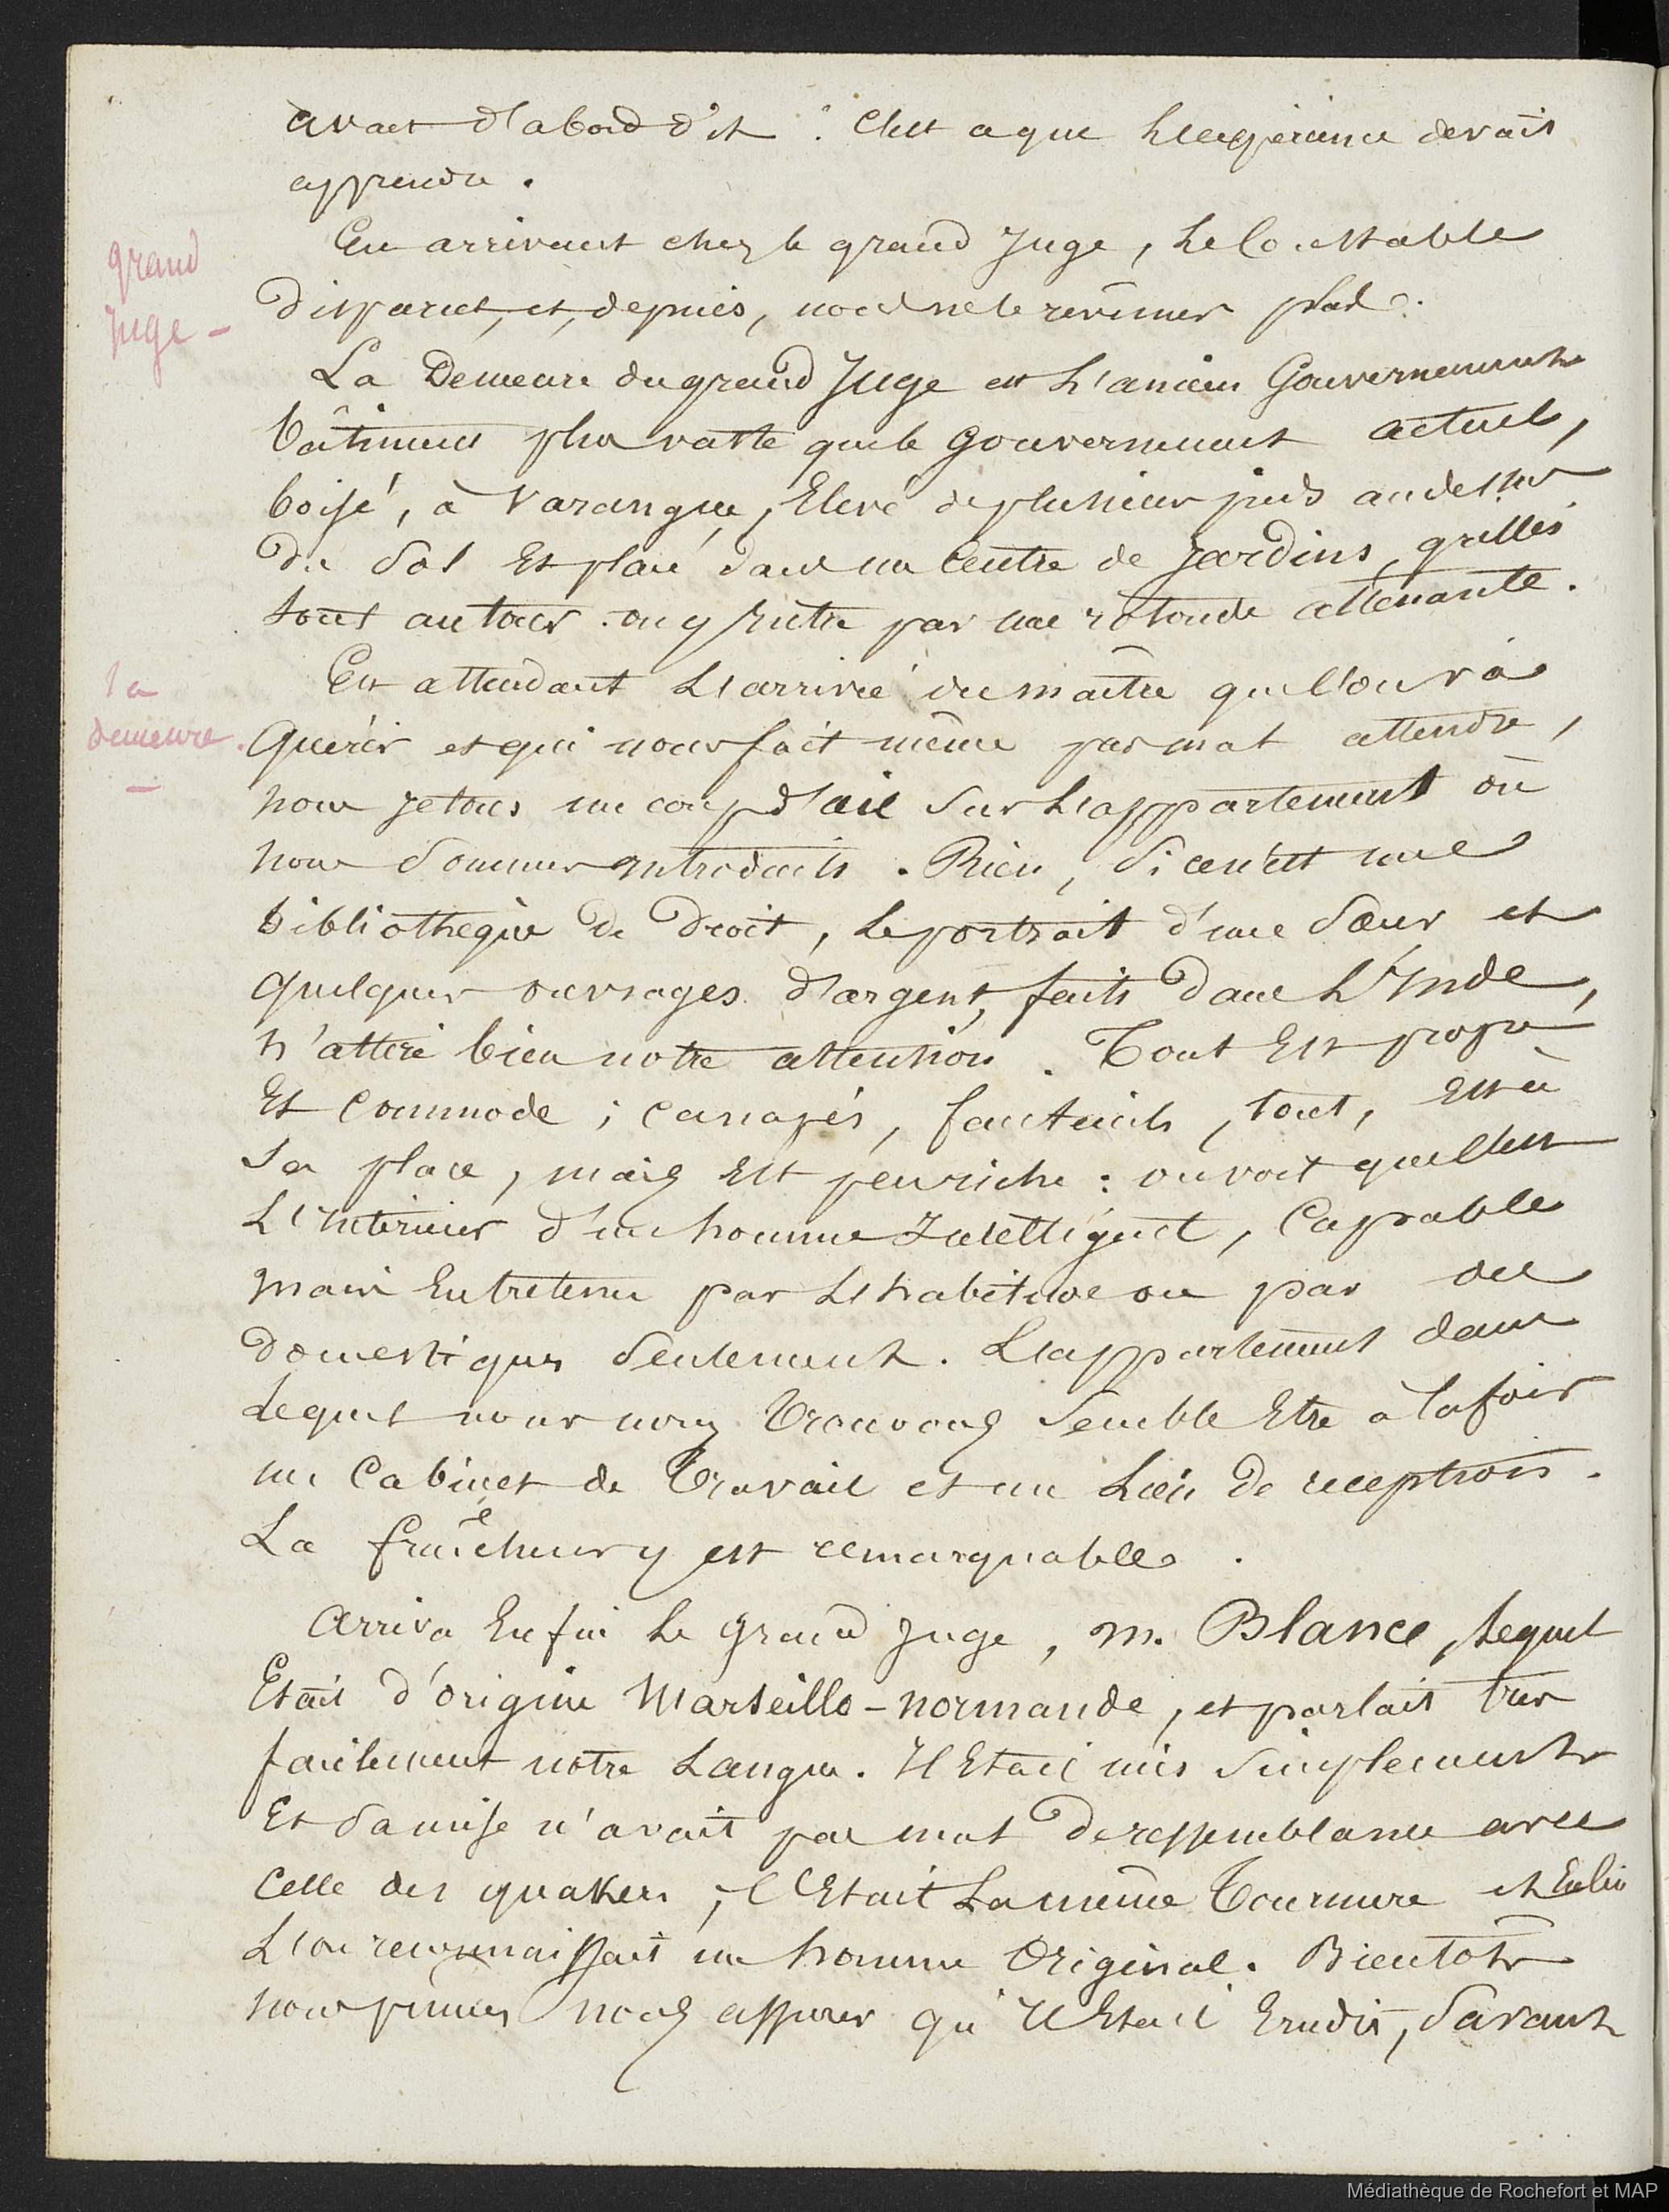 avait d'abord dit : C'est ce que L'expérience devait
apprendre.
En arrivant chez le grand Juge, Le Constable
disparut, et, depuis, nous ne le revîmes plus.
grand
Juge -
La Demeure du grand Juge est L'ancien Gouvernement
bâtiment plus vaste que le Gouvernement actuel,
boisé, à Varangue, Elevé de plusieurs pieds au dessus
du Sol Et placé dans un Centre de Jardins, grillés
tout autour. on y Entre par une rotonde attenante.
En attendant L'arrivée du maître que l'on va
la
demeure.
-
Quérir et qui nous fait même pas mal attendre,
nous jetons un coup d'œil Sur L'appartement où
nous Sommes introduits. Rien, Si ce n'est une
bibliothèque de Droit, Le portrait d'une Sœur et
quelques ouvrages d'argent, faits Dans L'Inde,
n'attire bien notre attention. Tout Est propre
Et Commode ; Canapés, fauteuils, tout, Est à
Sa place, mais Est peu riche : on voit que C'est
L'Intérieur d'un homme Intelligent, Capable
mais Entretenu par L'habitude ou par des
Domestiques Seulement. L'appartement dans
Lequel nous nous Trouvons Semble Etre à la fois
un Cabinet de Travail et un Lieu de reception.
La fraîcheur y est remarquable.
Arriva Enfin Le Grand Juge, M. Blance, Lequel
Etait d'origine Marseillo-normande, et parlait tres
facilement notre Langue. Il Etait mis Simplement
Et Sa mise n'avait pas mal De ressemblance avec
Celle des quakers ; C'Etait La même Tournure et En lui
L'on reconnaissait un homme Original. Bientôt
nous pûmes nous assurer qu'Il Etait Erudit, Savant
Médiathèque de Rochefort et MAP